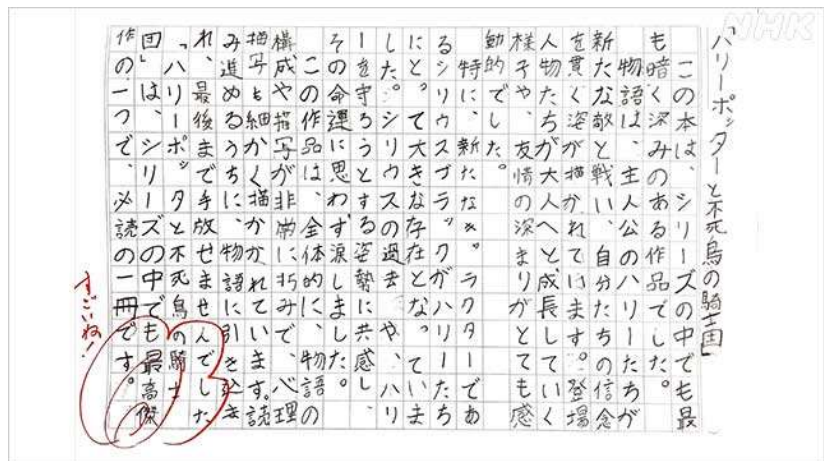 「ハリーポッターと不死鳥の騎士団」
この本は、シリーズの中でも最
も暗く深みのある作品でした。
物語は、主人公のハリーたちが
新たな敵と戦い、自分たちの信念
を貫く姿が描かれています。登場
人物たちが大人へと成長していく
様子や、友情の深まりがとても感
動的でした。
特に、新たなキャラクターであ
るシリウスブラックがハリーたち
にとって大きな存在となっていま
した。シリウスの過去や、ハリ
ーを守ろうとする姿勢に共感し、
その命運に思わず涙しました。
この作品は、全体的に、物語の
構成や描写が非常に巧みで、心理
描写も細かく描かれています。読
み進めるうちに、物語に引き込ま
れ、最後まで手放せませんでした
「ハリーポッタと不死鳥の騎士
団」は、シリーズの中でも最高傑
作の一つで、必読の一冊です。
すごいね!
NHK